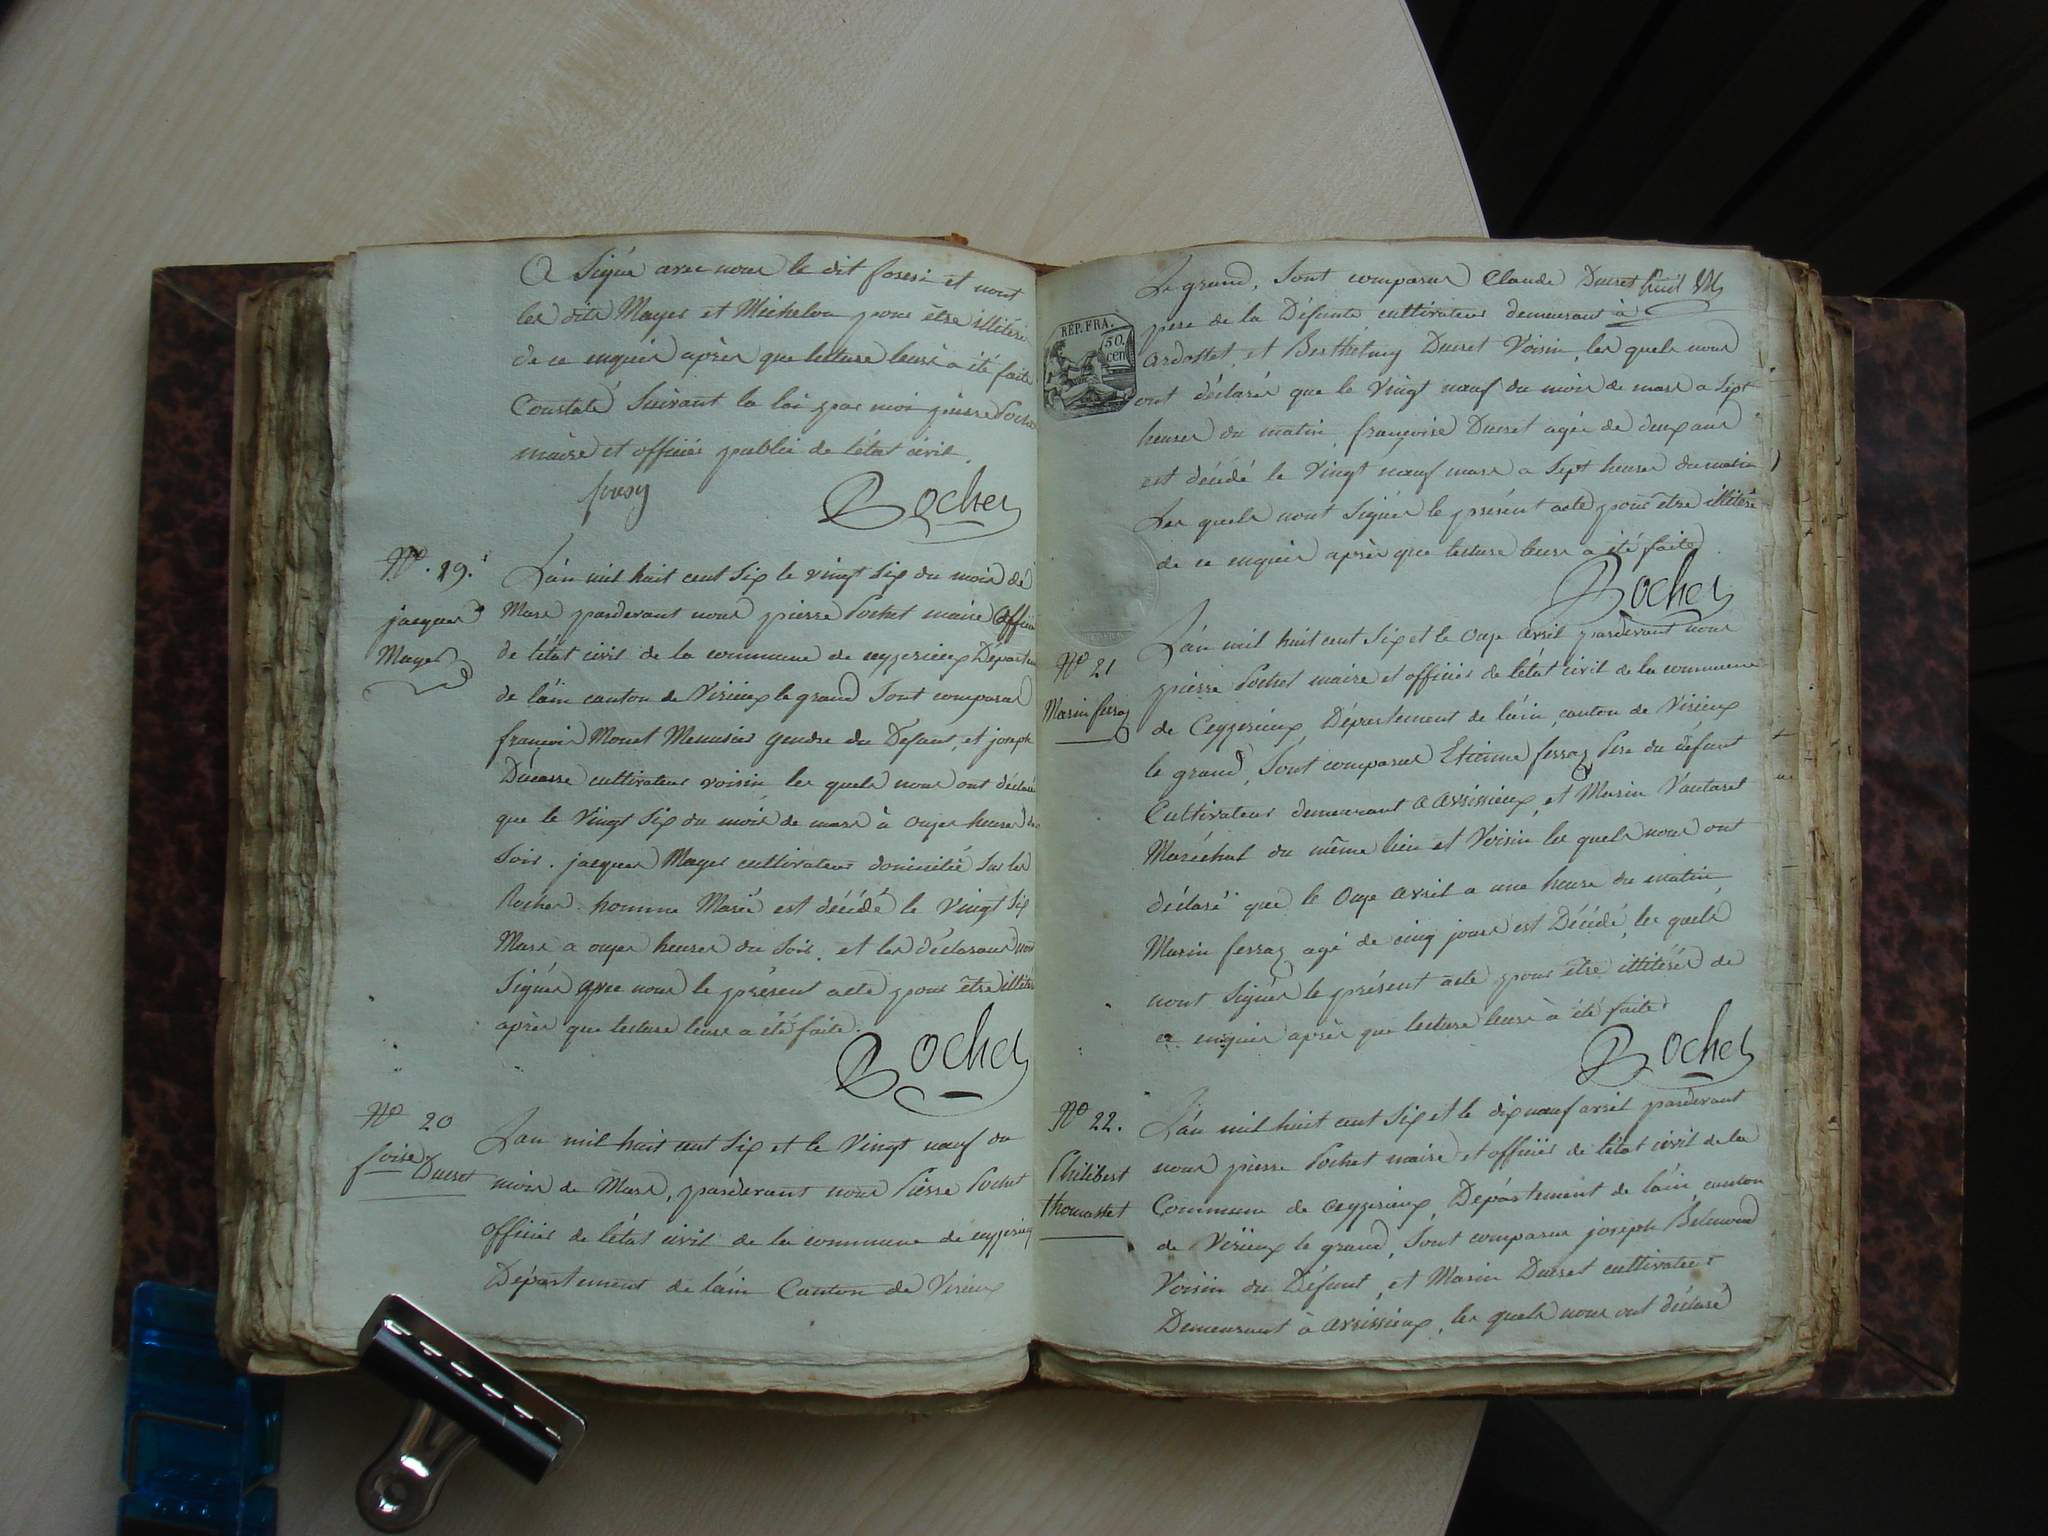 A Signé avec nous le dit foresi et nont
les dits Mayet et Michelon pour être illitéré
de ce enquir après que lecture leurs a été faite
Constaté Suivant la loi par moi pierre Pochet
maire et officiér public de l'état civil.
Pochet
N° 19.
jacques
Mayet
L'an mil huit cent Six le vingt Six du mois de
Mars pardevant nous pierre Pochet maire officié
de l'état civil de la commune de ceyzerieux Départem
de l'ain canton de Virieux le grand Sont comparus
françois Monet Menuisier gendre du Défunt, et joseph
Ducasse cultivateur voisin les quels nous ont déclaré
que le Vingt Six du mois de mars à onzes heures du
Soir. jacques Mayet cultivateur domicilié Sur les
Rocher homme Marié est décédé le Vingt Six
Mars a onzes heures du Soir. et les déclarans nont
Signés avec nous le présent acte pour être illitéré
après que lecture leurs a été faite.
Pochet
N° 20
foise Ducret
L'an mil huit cent Six et le Vingt nœuf du
mois de Mars, pardevant nous Pierre Pochet
officiér de l'état civil de la commune de ceyzerieux
Département de l'ain Canton de Virieux
Le grand, Sont comparus Claude Ducret
pere de la Défunte cultivateur demeurant à
Ardostet, et Berthélmy Ducret Voisin, les quels nous
ont déclarés que le Vingt nœuf du mois de mars a Sept
heures du matin, françoise Ducret agée de deux ans
est décédé le Vingt nœuf mars a Sept heures du matin
Les quels nont Signés le présent acte pour être illitéré
de ce enquir après que lecture leurs a été faite
Pochet
RÉP. FRA.
50.
cen
N° 21
Marin ferraz
L'an mil huit cent Six et le onze avril pardevant nous
pierre Pochet maire et officiér de l'état civil de la commune
de Ceyzerieux, Département de l'ain, canton de Virieux
le grand, Sont comparus Etienne ferraz Pere du défunt
Cultivateur demeurant a avrissieux, et Marin Vautaret
Maréchal du même lieu et Voisin les quels nous ont
déclaré que le Onze avril a une heure du matin
Marin ferraz agé de cinq jours est Décédé, les quels
nont Signés le présent acte pour être illitéré de
ce enquir après que lecture leurs à été faite
Pochet
N° 22.
Philibert
thomasset
L'an mil huit cent Six et le dix nœuf avril pardevant
nous pierre Pochet maire et officiér de l'état civil de la
Commune de ceyzerieux, Département de l'ain canton
de Virieux le grand, Sont comparus joseph Bélmond
Voisin du Défunt, et Marin Ducret cultivateur
Demeurant à avrissieux, les quels nous ont déclaré